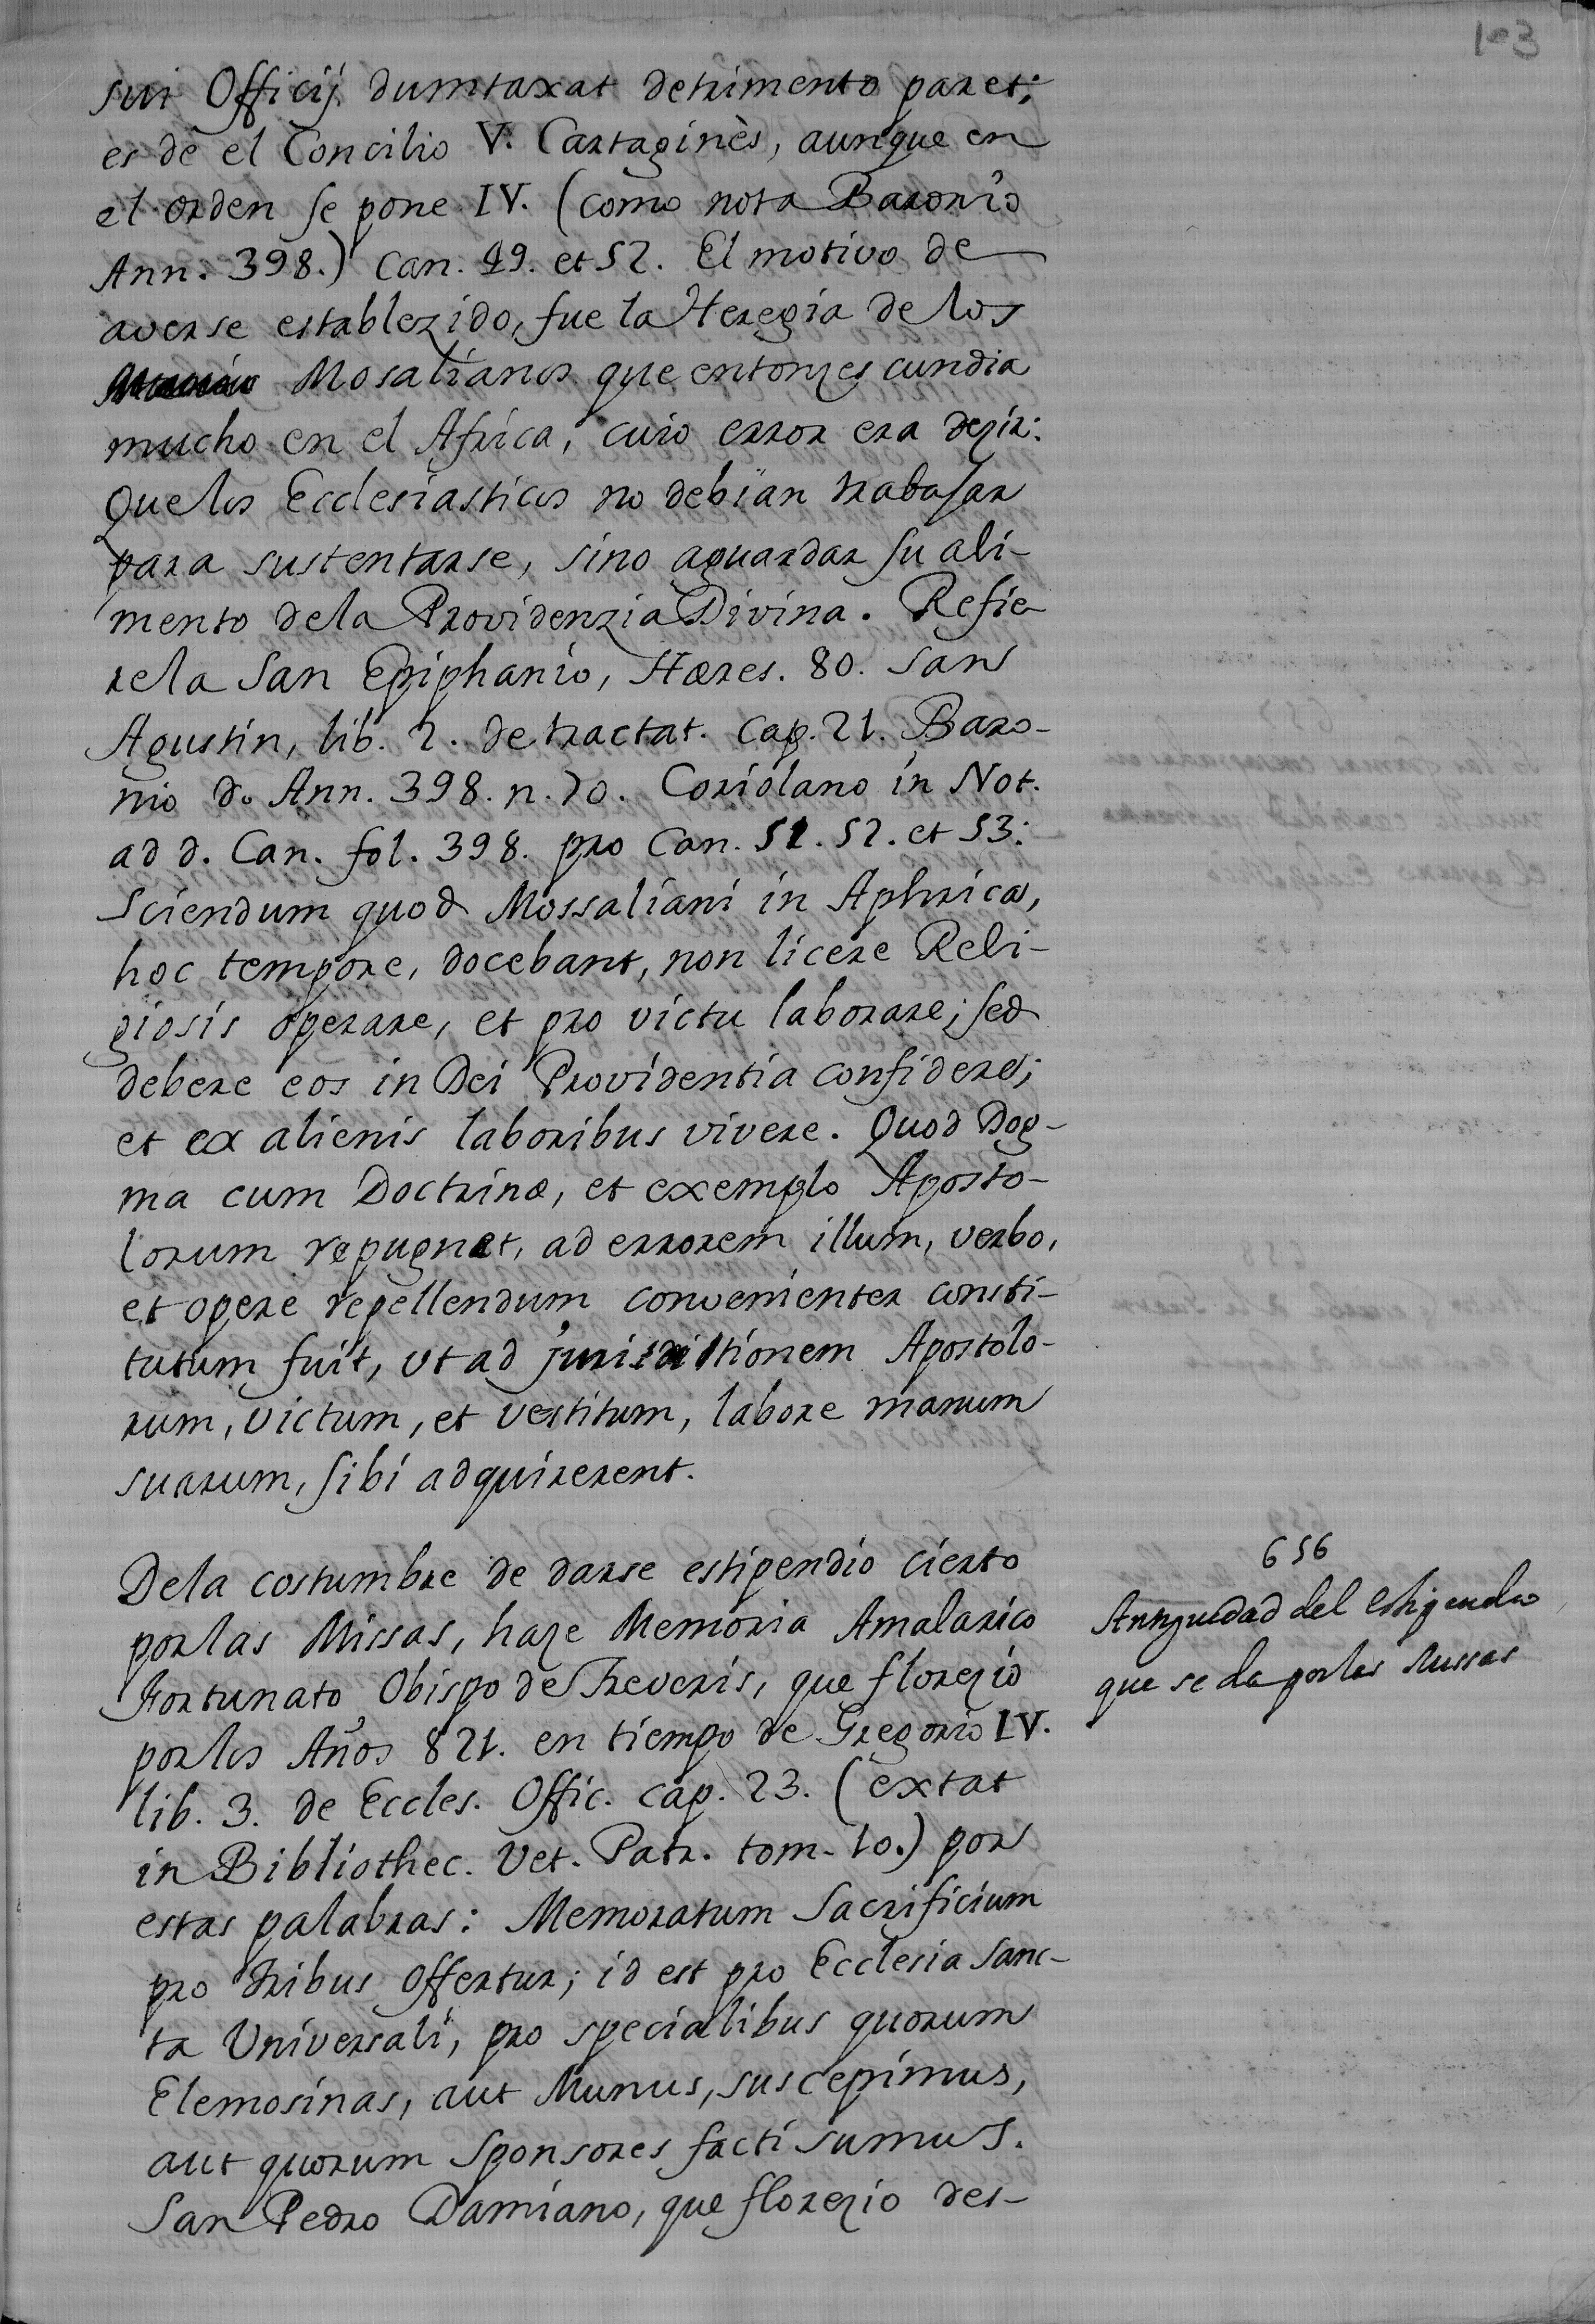 1-3
sui Officij dumtaxat detrimento paret;
es de el Concilio V. Cartaginès, aunque en
el orden se pone IV. (como nota Baronio
Ann. 398.) Can. 49. et 52. El motivo de
averse establezido, fue la Heregia de los
Mosalianos que entonzes cundia
mucho en el Africa, cuio error era dezir:
Que los Ecclesiasticos no debian trabajar
para sustentarse, sino aguardar su ali-
mento dela Providenzia Divina. Refie-
rela San Epiphanio, Hæres. 80. San
Agustin, lib. 2. detractat. Cap. 21. Baro-
nio d. Ann. 398. n. 70. Coriolano in Not.
ad d. Can. fol. 398. pro Can. 51. 52. et 53:
Sciendum quod Mossaliani in Aphrica,
hoc tempore, docebant, non licere Reli-
giosis operare, et pro victu laborare; sed
debere eos in Dei Providentia confidere;
et ex alienis laboribus vivere. Quod Dog-
ma cum Doctrina, et exemplo Aposto-
lorum repugnet, ad errorem illum, verbo,
et opere repellendum convenienter consti-
tutum fuit, ut ad jurisdictionem Apostolo-
rum, victum, et vestitum, labore manum
suarum, sibi adquirerent.
Dela costumbre de darse estipendio cierto
por las Missas, haze Memoria Amalarico
Fortunato, Obispo de Treveris, que florezio
por los Años 821. en tiempo de Gregorio IV.
lib. 3. de Eccles. Offic. cap. 23. (extat
in Bibliothec. Vet. Patr. tom. 10.) por
estas palabras: Memoratum Sacrificium
pro tribus offertur; id est pro Ecclesia Sanc-
ta Universali, pro specialibus quorum
Elemosinas, aut Munus, suscepimus,
aut quorum Sponsores facti sumus.
San Pedro Damiano, que florezio des-
656
Antiguedad del estipendio
que se da por las Missas